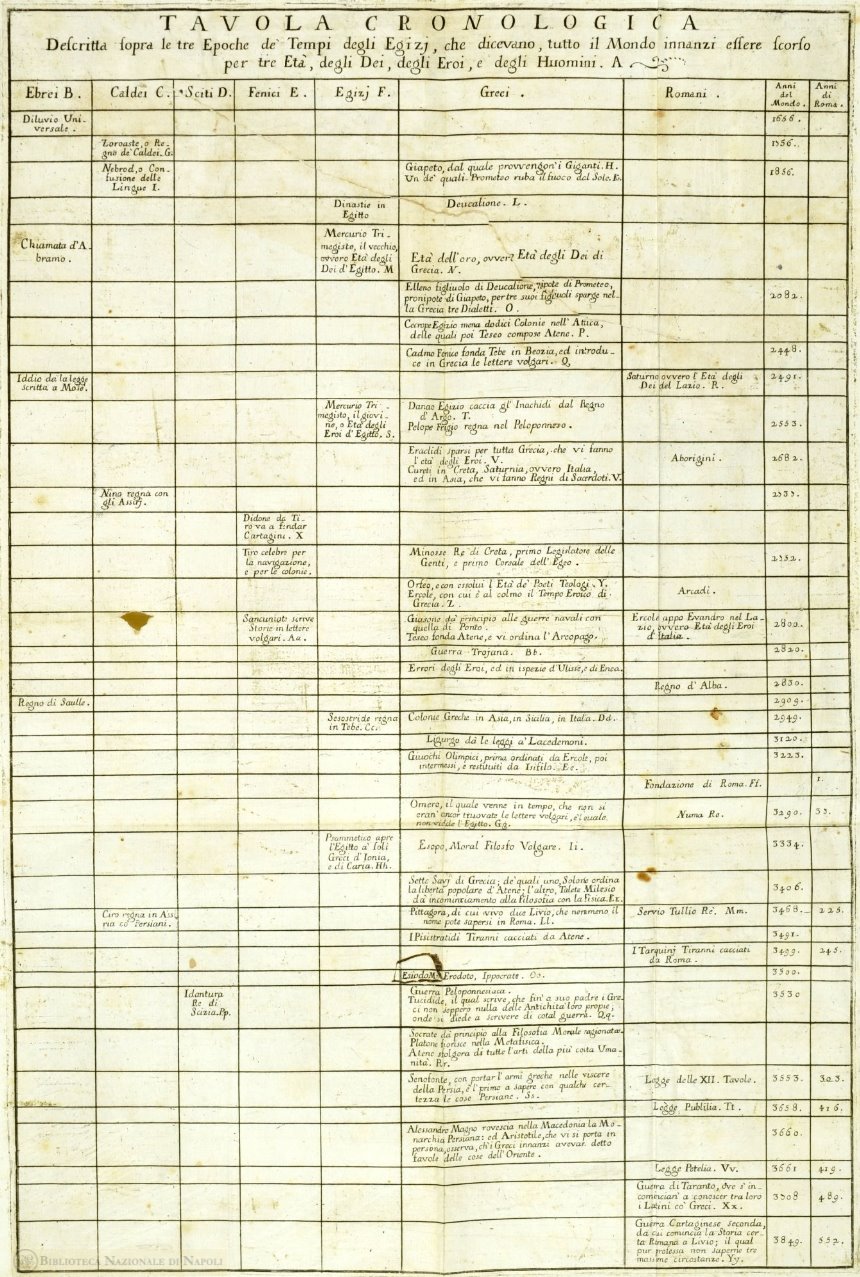 TAVOLA CRONOLOGICA
Descritta sopra le tre Epoche de' Tempi degli Egizj, che dicevano, tutto il Mondo innanzi essere scorso
per tre Età, degli Dei, degli Eroi, e degli Huomini. A
Ebrei B. Caldei C. Sciti D. Fenici E. Egizj F. Greci. Romani. Anni del Mondo. Anni di Roma.
Diluvio Uni-
versale. 1656.
Zoroaste, o Re-
gno de' Caldei. G. 1756.
Nebrod, o Con-
fusione delle
Lingue I.
Giapeto, dal quale provvengon' i Giganti. H.
Un de' quali Prometeo ruba il fuoco dal Sole. K.
1856.
Dinastie in
Egitto
Deucalione. L.
Chiamata d'A-
bramo.
Mercurio Tri-
megisto, il vecchio,
ovvero Età degli
Dei d'Egitto. M
Età dell'oro, ovver Età degli Dei di
Grecia. N.
Elleno figliuolo di Deucalione, nipote di Prometeo,
pronipote di Giapeto, per tre suoi figliuoli sparge nel-
la Grecia tre Dialetti. O.
2082.
Cecrope Egizio mena dodici Colonie nell'Attica,
delle quali poi Teseo compose Atene. P.
Cadmo Fenice fonda Tebe in Beozia, ed introdu-
ce in Grecia le lettere volgari. Q.
2448.
Iddio dà la legge
scritta a Mosè.
Saturno ovvero l'Età degli
Dei del Lazio. R.
2491.
Mercurio Tri-
megisto, il giovi-
ne, o Età degli
Eroi d'Egitto. S.
Danao Egizio caccia gl'Inachidi dal Regno
d'Argo. T.
Pelope Frigio regna nel Peloponneso.
2553.
Eraclidi sparsi per tutta Grecia, che vi fanno
l'età degli Eroi. V.
Cureti in Creta, Saturnia, ovvero Italia,
ed in Asia, che vi fanno Regni di Sacerdoti. V.
Aborigini.
2682.
Nino regna con
gli Assirj.
Didone da Ti-
ro va a fondar
Cartagini. X
Tiro celebre per
la navigazione,
e per le colonie.
Minosse Re di Creta, primo Legislatore delle
Genti, e primo Corsale dell'Egeo.
Orfeo, e con essolui l'Età de' Poeti Teologi. Y.
Ercole, con cui è al colmo il Tempo Eroico di
Grecia. Z.
Arcadi.
Sancuniato scrive
Storie in lettere
volgari. Aa.
Giasone dà principio alle guerre navali con
quella di Ponto.
Teseo fonda Atene, e vi ordina l'Areopago.
Ercole appo Evandro nel La-
zio, ovvero Età degli Eroi
d'Italia.
2800.
Guerra Trojana. Bb. 2820.
Errori degli Eroi, ed in ispezie d'Ulisse, e di Enea.
Regno d'Alba. 2830.
Regno di Saulle. 2909.
Sesostride regna
in Tebe. Cc.
Colonie Greche in Asia, in Sicilia, in Italia. Dd.
2949.
Ligurgo dà le leggi a' Lacedemoni. 3120.
Giuochi Olimpici, prima ordinati da Ercole, poi
intermessi, e restituiti da Isifilo. Ee.
3223.
Fondazione di Roma. Ff. 1.
Omero, il quale venne in tempo, che non si
eran' ancor truovate le lettere volgari, e 'l quale
non vide l'Egitto. Gg.
Numa Re.
3290. 33.
Psammetico apre
l'Egitto a' soli
Greci d'Ionia,
e di Caria. Hh.
Esopo, Moral Filosofo Volgare. Ii.
3334.
Sette Savj di Grecia; de' quali uno, Solone ordina
la libertà popolare d'Atene; l'altro, Talete Milesio
dà incominciamento alla Filosofia con la Fisica. Kk.
3406.
Ciro regna in Assi-
ria co' Persiani.
Pittagora, di cui vivo dice Livio, che nemmeno il
nome potè sapersi in Roma. Ll.
Servio Tullio Re. Mm.
3468. 225.
I Pisistratidi Tiranni cacciati da Atene. 3491.
I Tarquinj Tiranni cacciati
da Roma.
3499. 245.
Esiodo Erodoto, Ippocrate. Oo. 3500.
Idantura
Re di
Scizia. Pp.
Guerra Peloponnesiaca.
Tucidide, il qual scrive, che fin' a suo padre i Gre-
ci non seppero nulla delle Antichità loro propie,
onde si diede a scrivere di cotal guerra. Qq.
3530
Socrate dà principio alla Filosofia Morale ragionata.
Platone fiorisce nella Metafisica.
Atene sfolgora di tutte l'arti della più colta Uma-
nità. Rr.
Senofonte, con portar l'armi greche nelle viscere
della Persia, è 'l primo a sapere con qualche cer-
tezza le cose Persiane. Ss.
Legge delle XII. Tavole.
3553. 303.
Legge Publilia. Tt. 3658. 416.
Alessandro Magno rovescia nella Macedonia la Mo-
narchia Persiana: ed Aristotile, che vi si porta in
persona, osserva, ch'i Greci innanzi avevan detto
favole delle cose dell'Oriente.
3660.
Legge Petelia. Vv. 3661 419.
Guerra di Taranto, ove s'in-
cominciano a conoscer tra loro
i Latini co' Greci. Xx.
489.
Guerra Cartaginese seconda,
da cui comincia la Storia cer-
ta Romana a Livio; il qual
pur professa non saperne tre
massime circostanze. Yy.
3849. 552.
BIBLIOTECA NAZIONALE DI NAPOLI